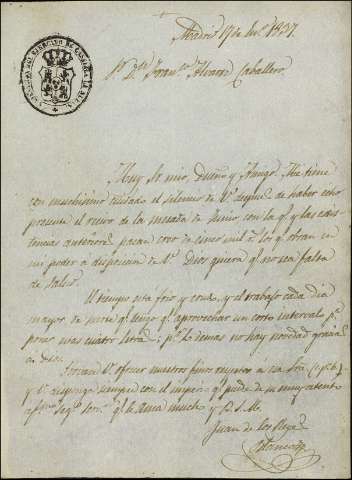 Madrid 17 de Julio 1837.
Sr. Dn. Franco. Alvarez Caballero.
Muy Sr. mio Dueño y Amigo. Me tiene
con muchisimo cuidado el silencio de V. despues de haber echo
presente el recivo de la mesada de Junio con la q. y las
anteriores pasan de cinco mil los q. obran en
mi poder a disposicion de V. Dios quiera q. no sea falta
de salud.
El tiempo esta frio y cruel, y el trabajo cada dia
mayor de suerte q. tengo q. aprovechar un corto intervalo pa.
poner estas cuatro letras; pr. lo demas no hay novedad gracias
a Dios.
V. ofrecer nuestros finos respetos a su Sra. (c.p.b.)
y V. disponga siempre con el imperio q. puede de su muy atento
afmo. segº. serv. q. le Ama mucho y B. S. M.
Juan de los Reyes